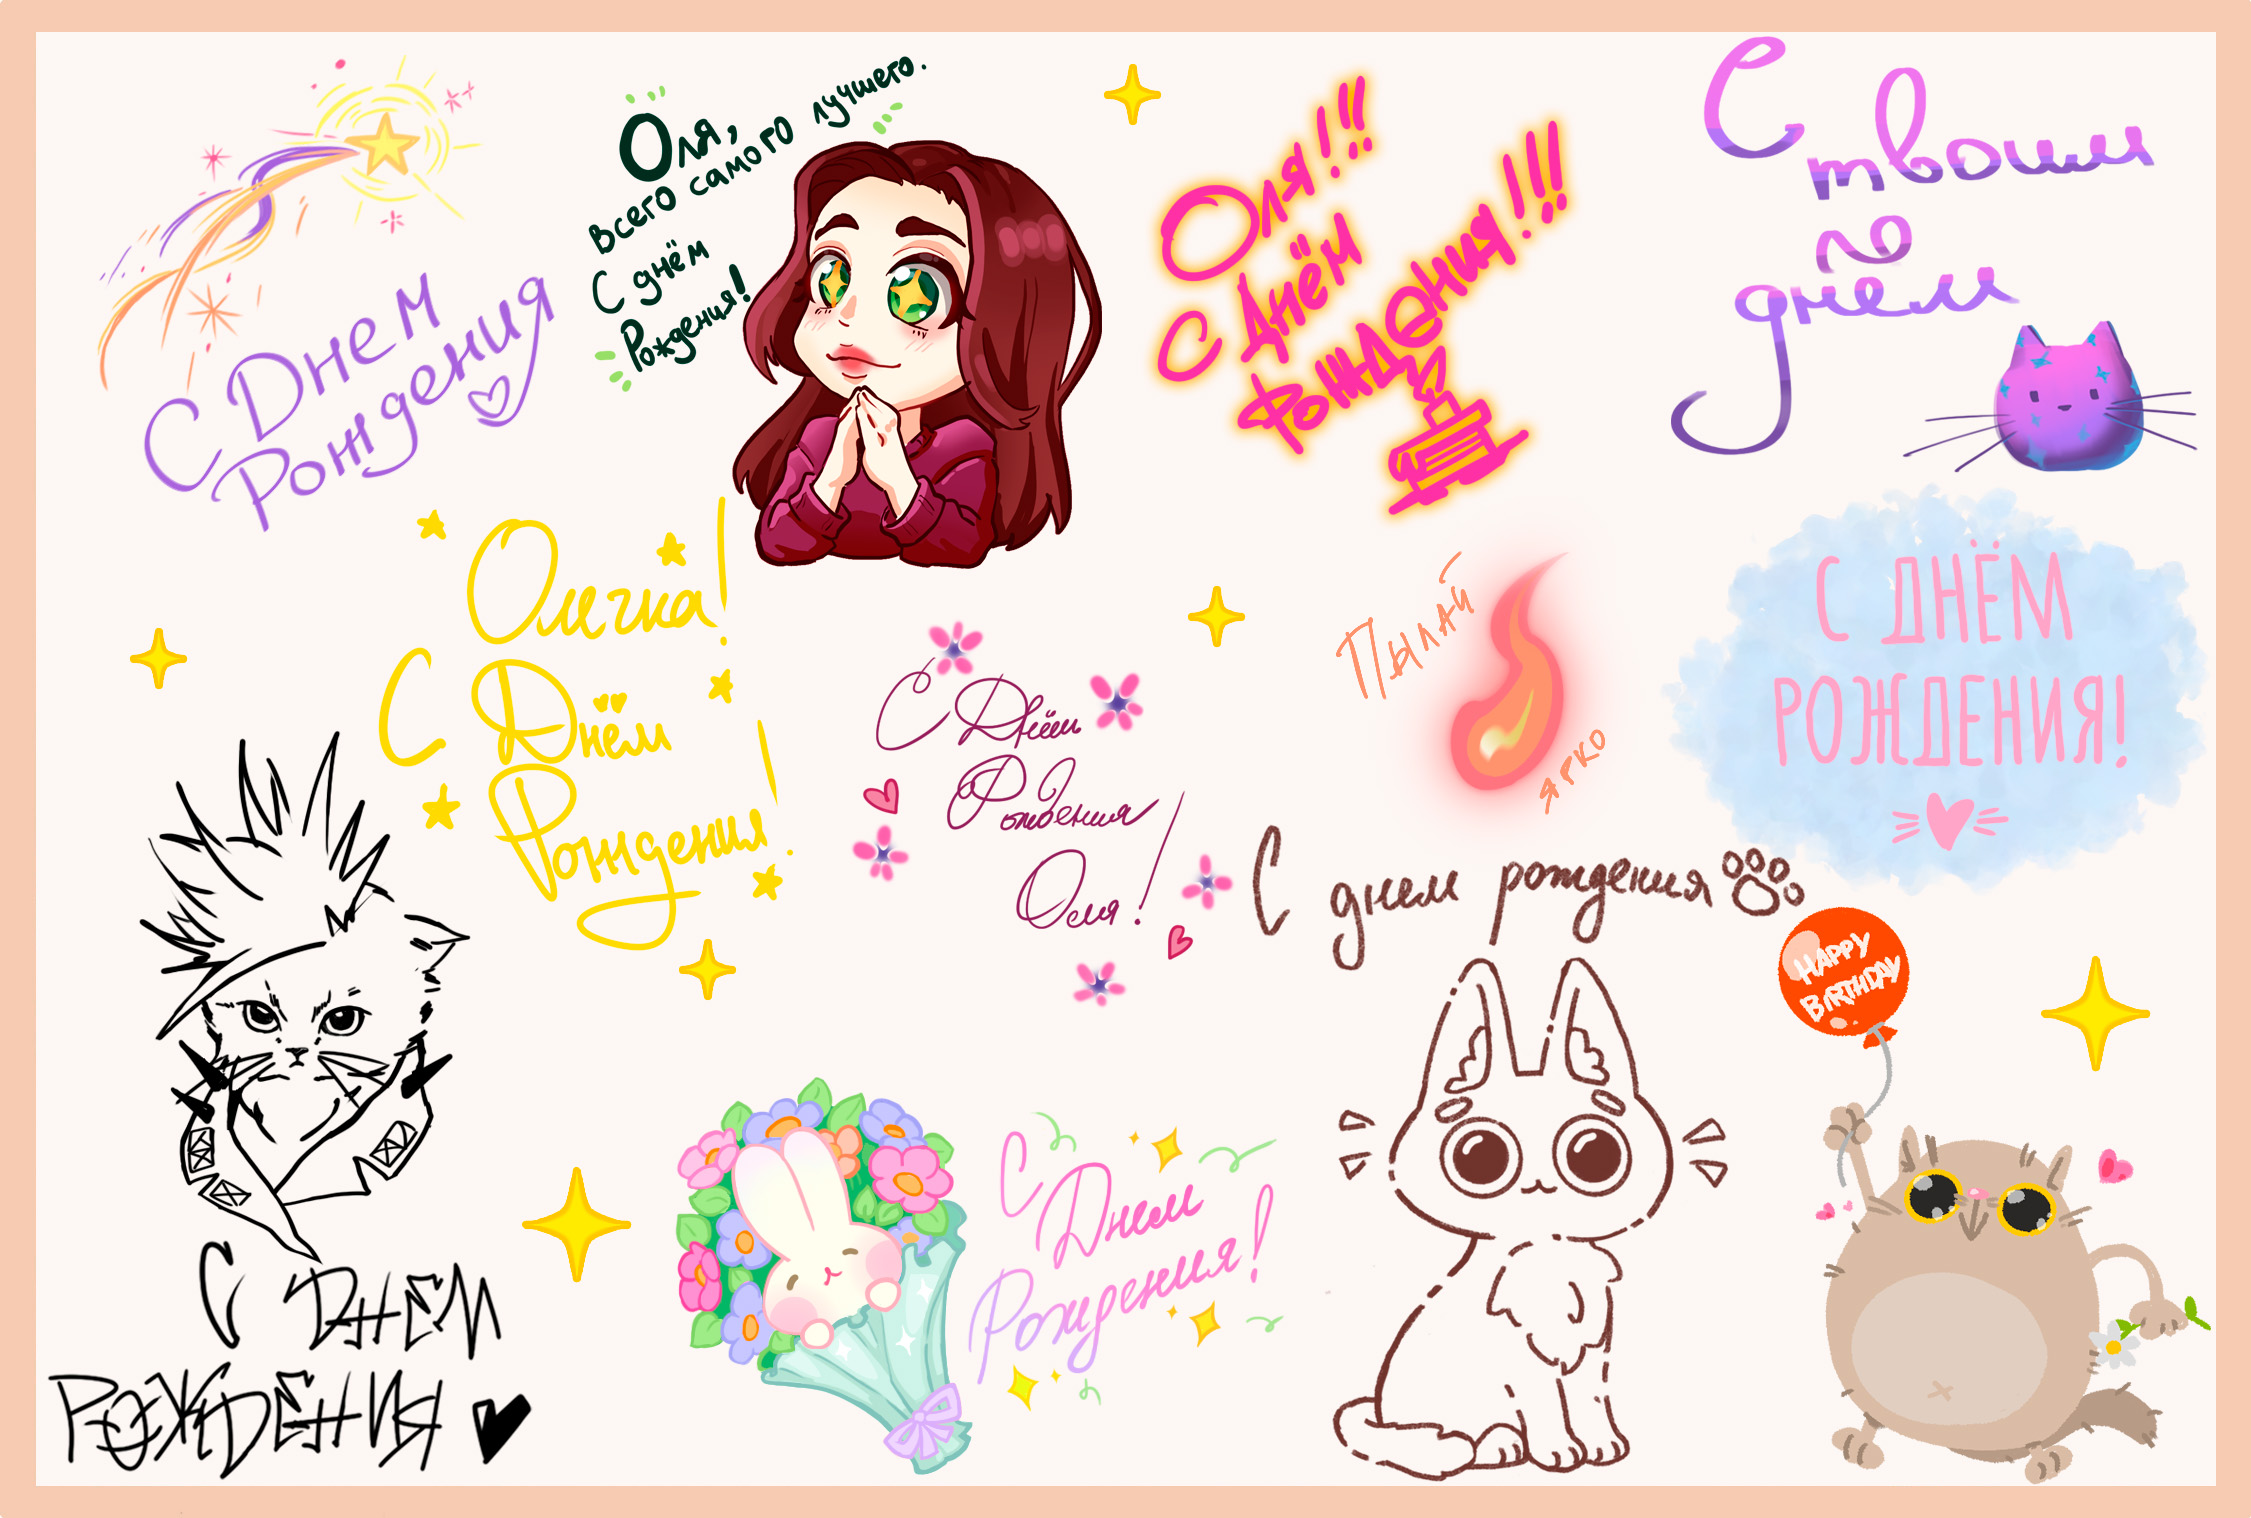 С Днем
Рождения
Оля,
всего самого лучшего.
С днём
Рождения!
Оля!!!
С Днём
Рождения!!!
С
твоим
по
днем
Олечка!
С Днём
Рождения!
С Днём
Рождения
Оля!
Пылай
ярко
С ДНЁМ
РОЖДЕНИЯ!
С днем рождения
HAPPY
BIRTHDAY
С ДНЕМ
РОЖДЕНИЯ
С
Днем
Рождения!